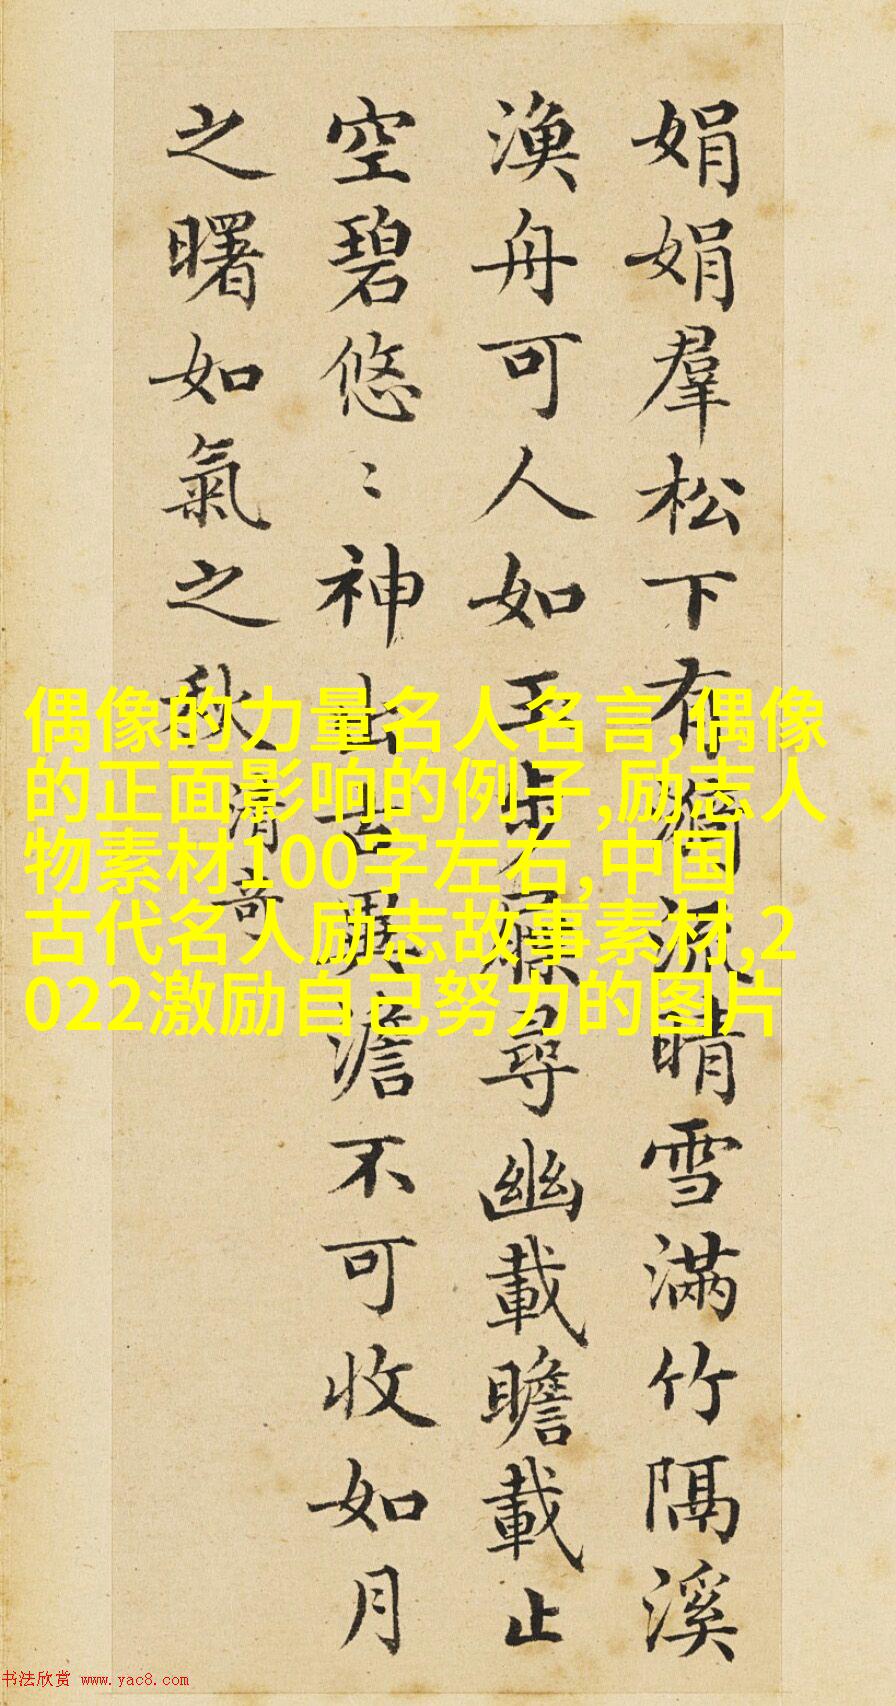 娟娟羣松下有漪流晴雪滿竹隔溪
漁舟可人如玉步屧尋幽載瞻載止
空碧悠〻神出古異澹不可收如月
之曙如氣之秋
清奇
偶像的力量名人名言,偶像
的正面影响的例子,励志人
物素材100字左右,中国
古代名人励志故事素材,2
022激励自己努力的图片
书法欣赏 www.yac8.com